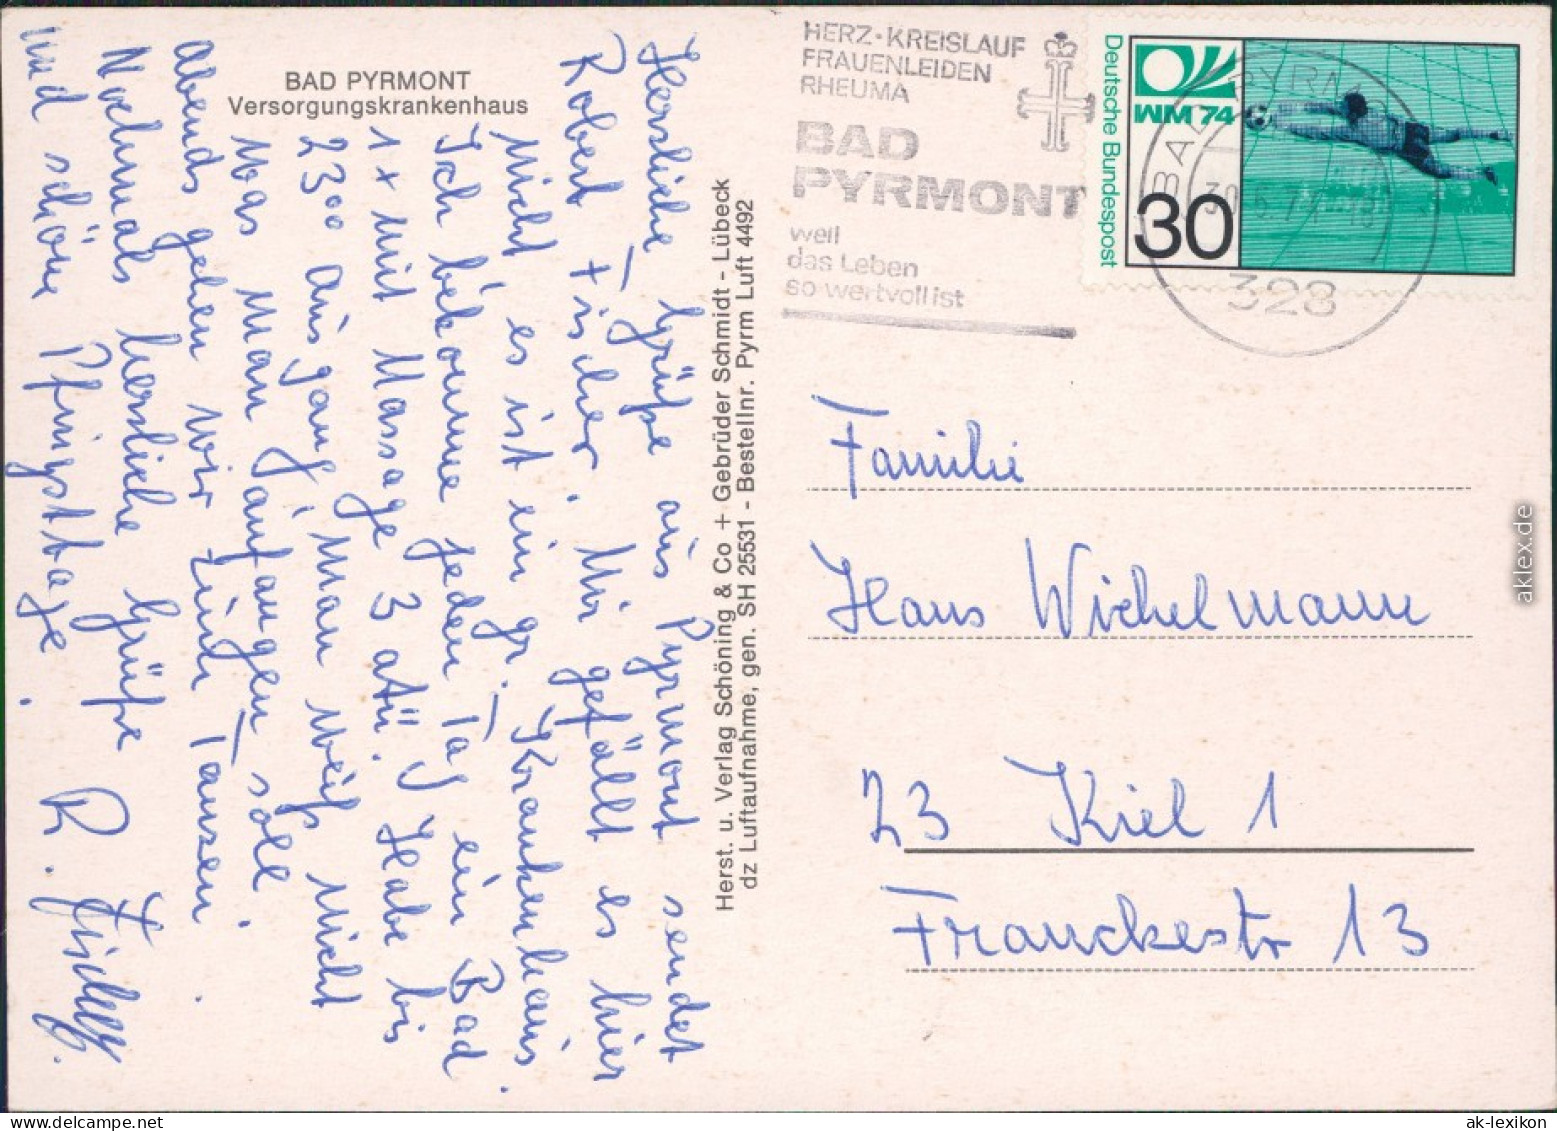 BAD PYRMONT
Versorgungskrankenhaus
Herzliche Grüße aus Pyrmont sendet
Robert Fischer. Mir gefällt es hier
Nicht es ist ein gr. Krankenhaus.
Ich bekomme jeden Tag ein Bad
1x mit Massage 3 atü. Habe bis
23°° Ausgang, man weiß nicht
was man anfangen soll.
Abends gehen wir zum Tanzen.
Nochmals herzliche Grüße
und schöne Pfingsttage.
R. Fischer
Herst. u. Verlag Schöning & Co + Gebrüder Schmidt - Lübeck
dz Luftaufnahme, gen. SH 25531 - Bestellnr. Pyrm Luft 4492
HERZ·KREISLAUF
FRAUENLEIDEN
RHEUMA
BAD
PYRMONT
weil
das Leben
so wertvoll ist
BAD PYRMONT
328
Deutsche Bundespost
WM 74
30
Familie
Hans Wichelmann
23 Kiel 1
Franckestr 13
aklex.de
ak-lexikon